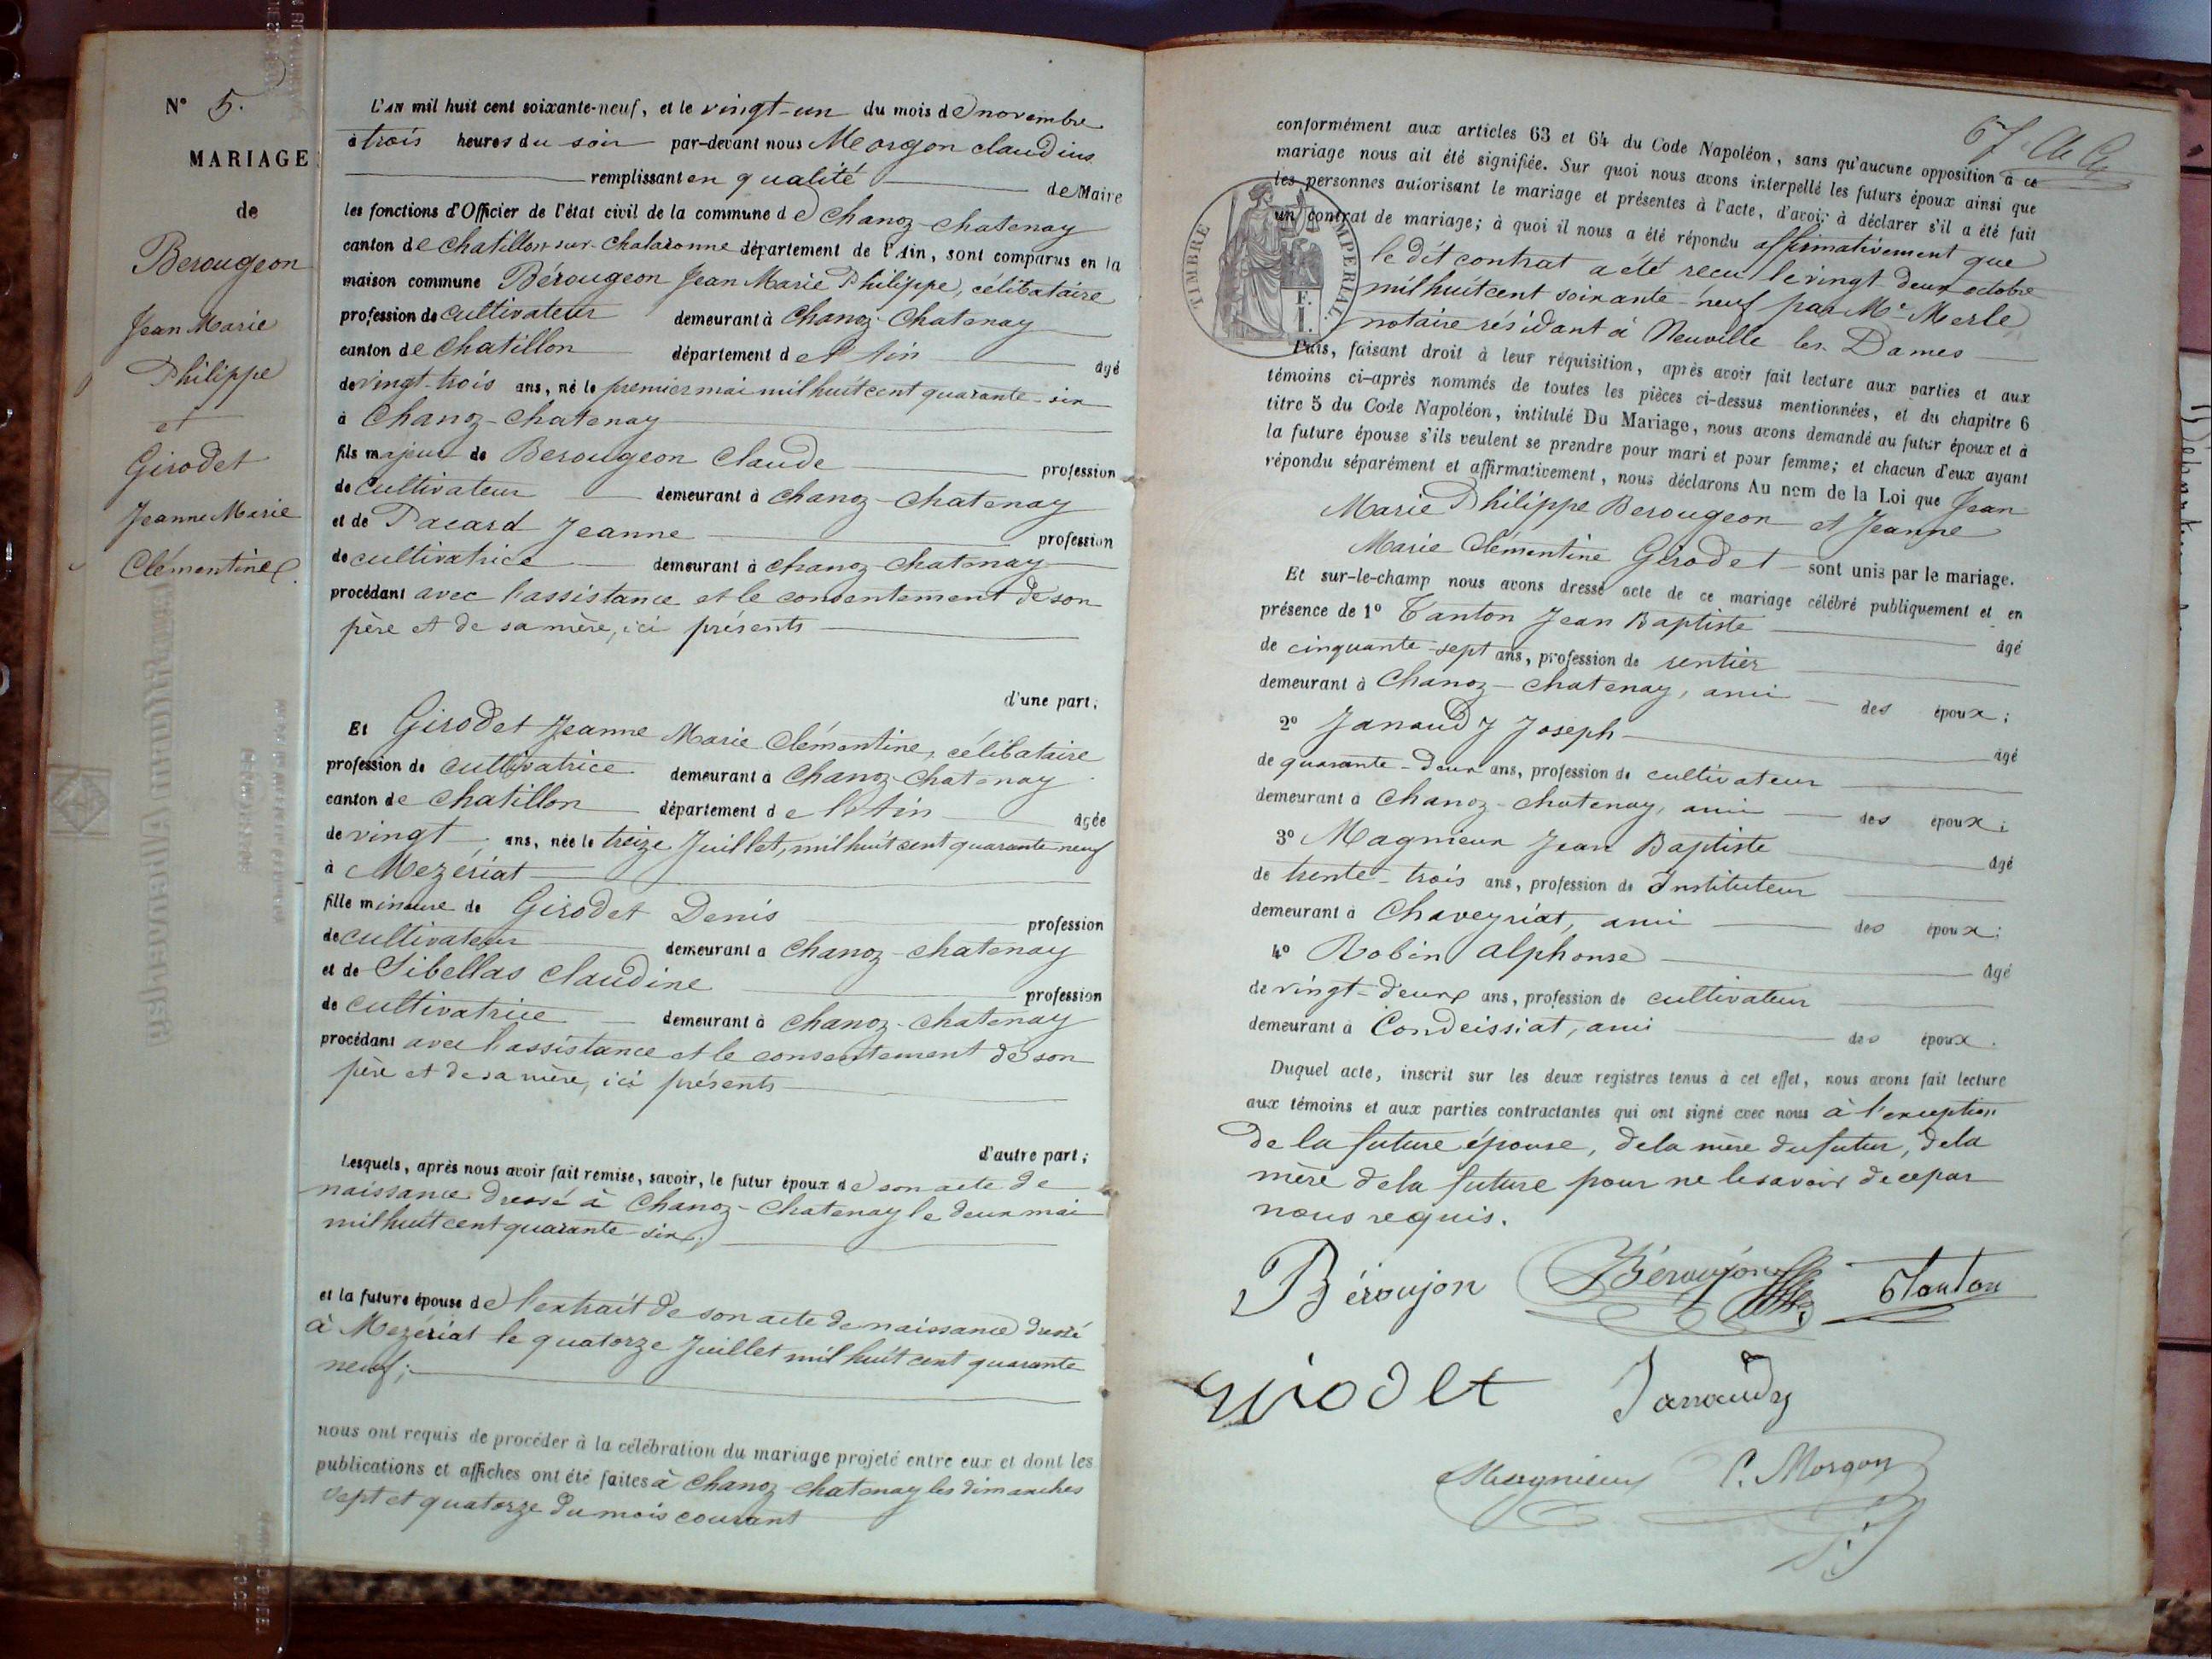 N° 5.
MARIAGE
de
Berougeon
Jean Marie
Philippe
et
Girodet
Jeanne Marie
Clémentine
L'AN mil huit cent soixante-neuf, et le vingt-un du mois de novembre
à trois heures du soir par-devant nous Morgon claudius
remplissant en qualité de Maire
les fonctions d'Officier de l'état civil de la commune de Chanoz-chatenay
canton de chatillon sur chalaronne département de l'Ain, sont comparus en la
maison commune Bérougeon Jean Marie Philippe, célibataire
profession de cultivateur demeurant à Chanoz-Chatenay
canton de chatillon département de l'Ain âgé
de vingt-trois ans, né le premier mai mil huit cent quarante-six
à Chanoz-chatenay
fils majeur de Berougeon Claude profession
de cultivateur demeurant à chanoz-chatenay
et de Pacard Jeanne profession
de cultivatrice demeurant à chanoz-chatenay
procédant avec l'assistance et le consentement de son
père et de sa mère, ici présents
d'une part;
Et Girodet Jeanne Marie Clémentine, célibataire
profession de cultivatrice demeurant à Chanoz-chatenay
canton de chatillon département de l'Ain âgée
de vingt ans, née le treize Juillet, mil huit cent quarante neuf
à Mezériat
fille mineure de Girodet Denis profession
de cultivateur demeurant à chanoz-chatenay
et de Sibellas Claudine profession
de cultivatrice demeurant à chanoz-chatenay
procédant avec l'assistance et le consentement de son
père et de sa mère, ici présents
d'autre part;
Lesquels, après nous avoir fait remise, savoir, le futur époux de son acte de
naissance dressé à Chanoz-Chatenay le deux mai
mil huit cent quarante-six;
et la future épouse de l'extrait de son acte de naissance dressé
à Mezériat le quatorze Juillet mil huit cent quarante
neuf;
nous ont requis de procéder à la célébration du mariage projeté entre eux et dont les
publications et affiches ont été faites à Chanoz-chatenay les dimanches
sept et quatorze du mois courant
conformément aux articles 63 et 64 du Code Napoléon, sans qu'aucune opposition à ce
mariage nous ait été signifiée. Sur quoi nous avons interpellé les futurs époux ainsi que
les personnes autorisant le mariage et présentes à l'acte, d'avoir à déclarer s'il a été fait
un contrat de mariage; à quoi il nous a été répondu affirmativement que
le dit contrat a été reçu le vingt deux octobre
mil huit cent soixante-neuf par Me Merle
notaire résidant à Neuville les Dames
TIMBRE IMPERIAL.
F.
I.
Puis, faisant droit à leur réquisition, après avoir fait lecture aux parties et aux
témoins ci-après nommés de toutes les pièces ci-dessus mentionnées, et du chapitre 6
titre 5 du Code Napoléon, intitulé Du Mariage, nous avons demandé au futur époux et à
la future épouse s'ils veulent se prendre pour mari et pour femme; et chacun d'eux ayant
répondu séparément et affirmativement, nous déclarons Au nom de la Loi que Jean
Marie Philippe Berougeon et Jeanne
Marie Clémentine Girodet sont unis par le mariage.
Et sur-le-champ nous avons dressé acte de ce mariage célébré publiquement et en
présence de 1° Tanton Jean Baptiste âgé
de cinquante-sept ans, profession de rentier
demeurant à Chanoz-chatenay, ami des époux;
2° Janaudy Joseph âgé
de quarante-deux ans, profession de cultivateur
demeurant à Chanoz-chatenay, ami des époux;
3° Magnieux Jean Baptiste âgé
de trente-trois ans, profession de Instituteur
demeurant à Chaveyriat, ami des époux;
4° Robin Alphonse âgé
de vingt-deux ans, profession de cultivateur
demeurant à Condeissiat, ami des époux.
Duquel acte, inscrit sur les deux registres tenus à cet effet, nous avons fait lecture
aux témoins et aux parties contractantes qui ont signé avec nous à l'exception
de la future épouse, de la mère du futur, de la
mère de la future pour ne le savoir de ce par
nous requis.
Béroujon Béroujon Tanton
girodet Janaudy
Magnieux C. Morgon